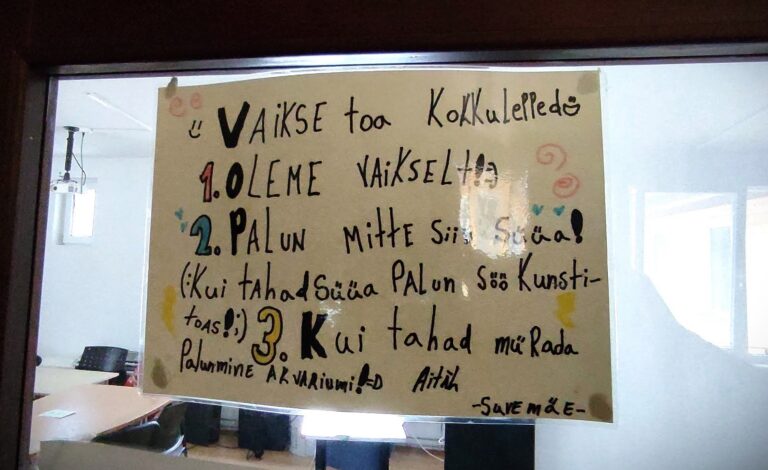 ü VAiKSE toa KoKKuleppedü
1. OLEME VAiKSELt!:)
2. PALUN Mitte Siis Süüa!
(:Kui tAHAd Süüa PALun Söö Kunsti-
toAS!;) 3. Kui tahad müRada
Palunmine AKVARiumi!=D Aitäh
-SuvemäE-